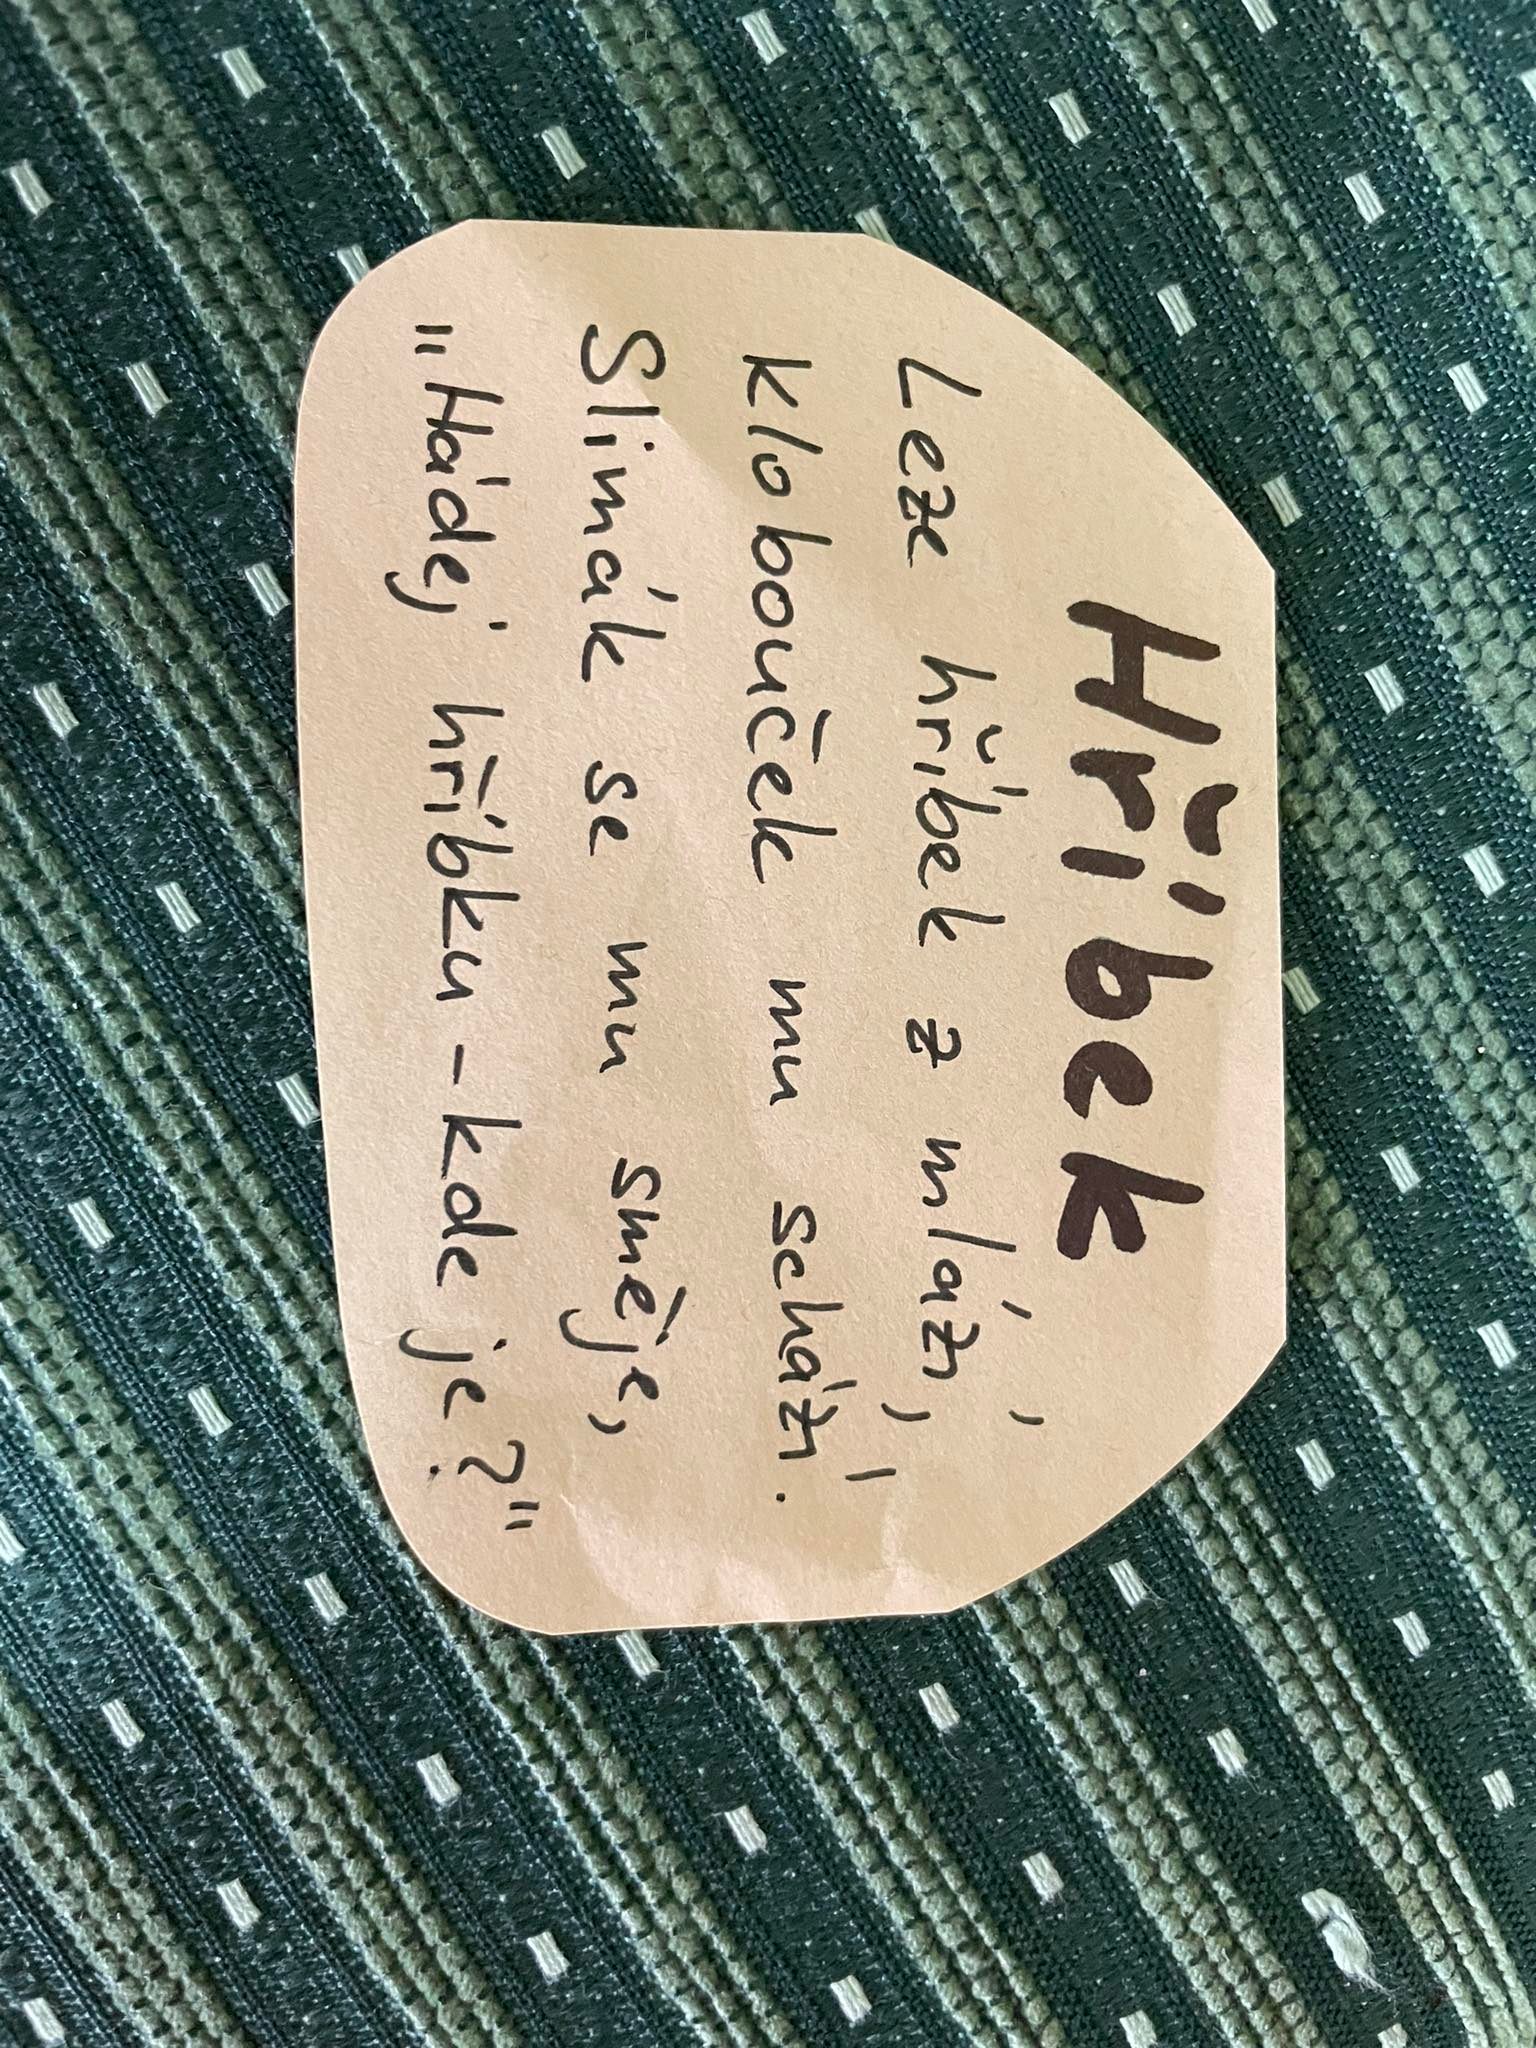 Hříbek
Leze hříbek z mlází,
Klobouček mu schází.
Slimák se mu směje,
"Hádej hříbku - kde je?"